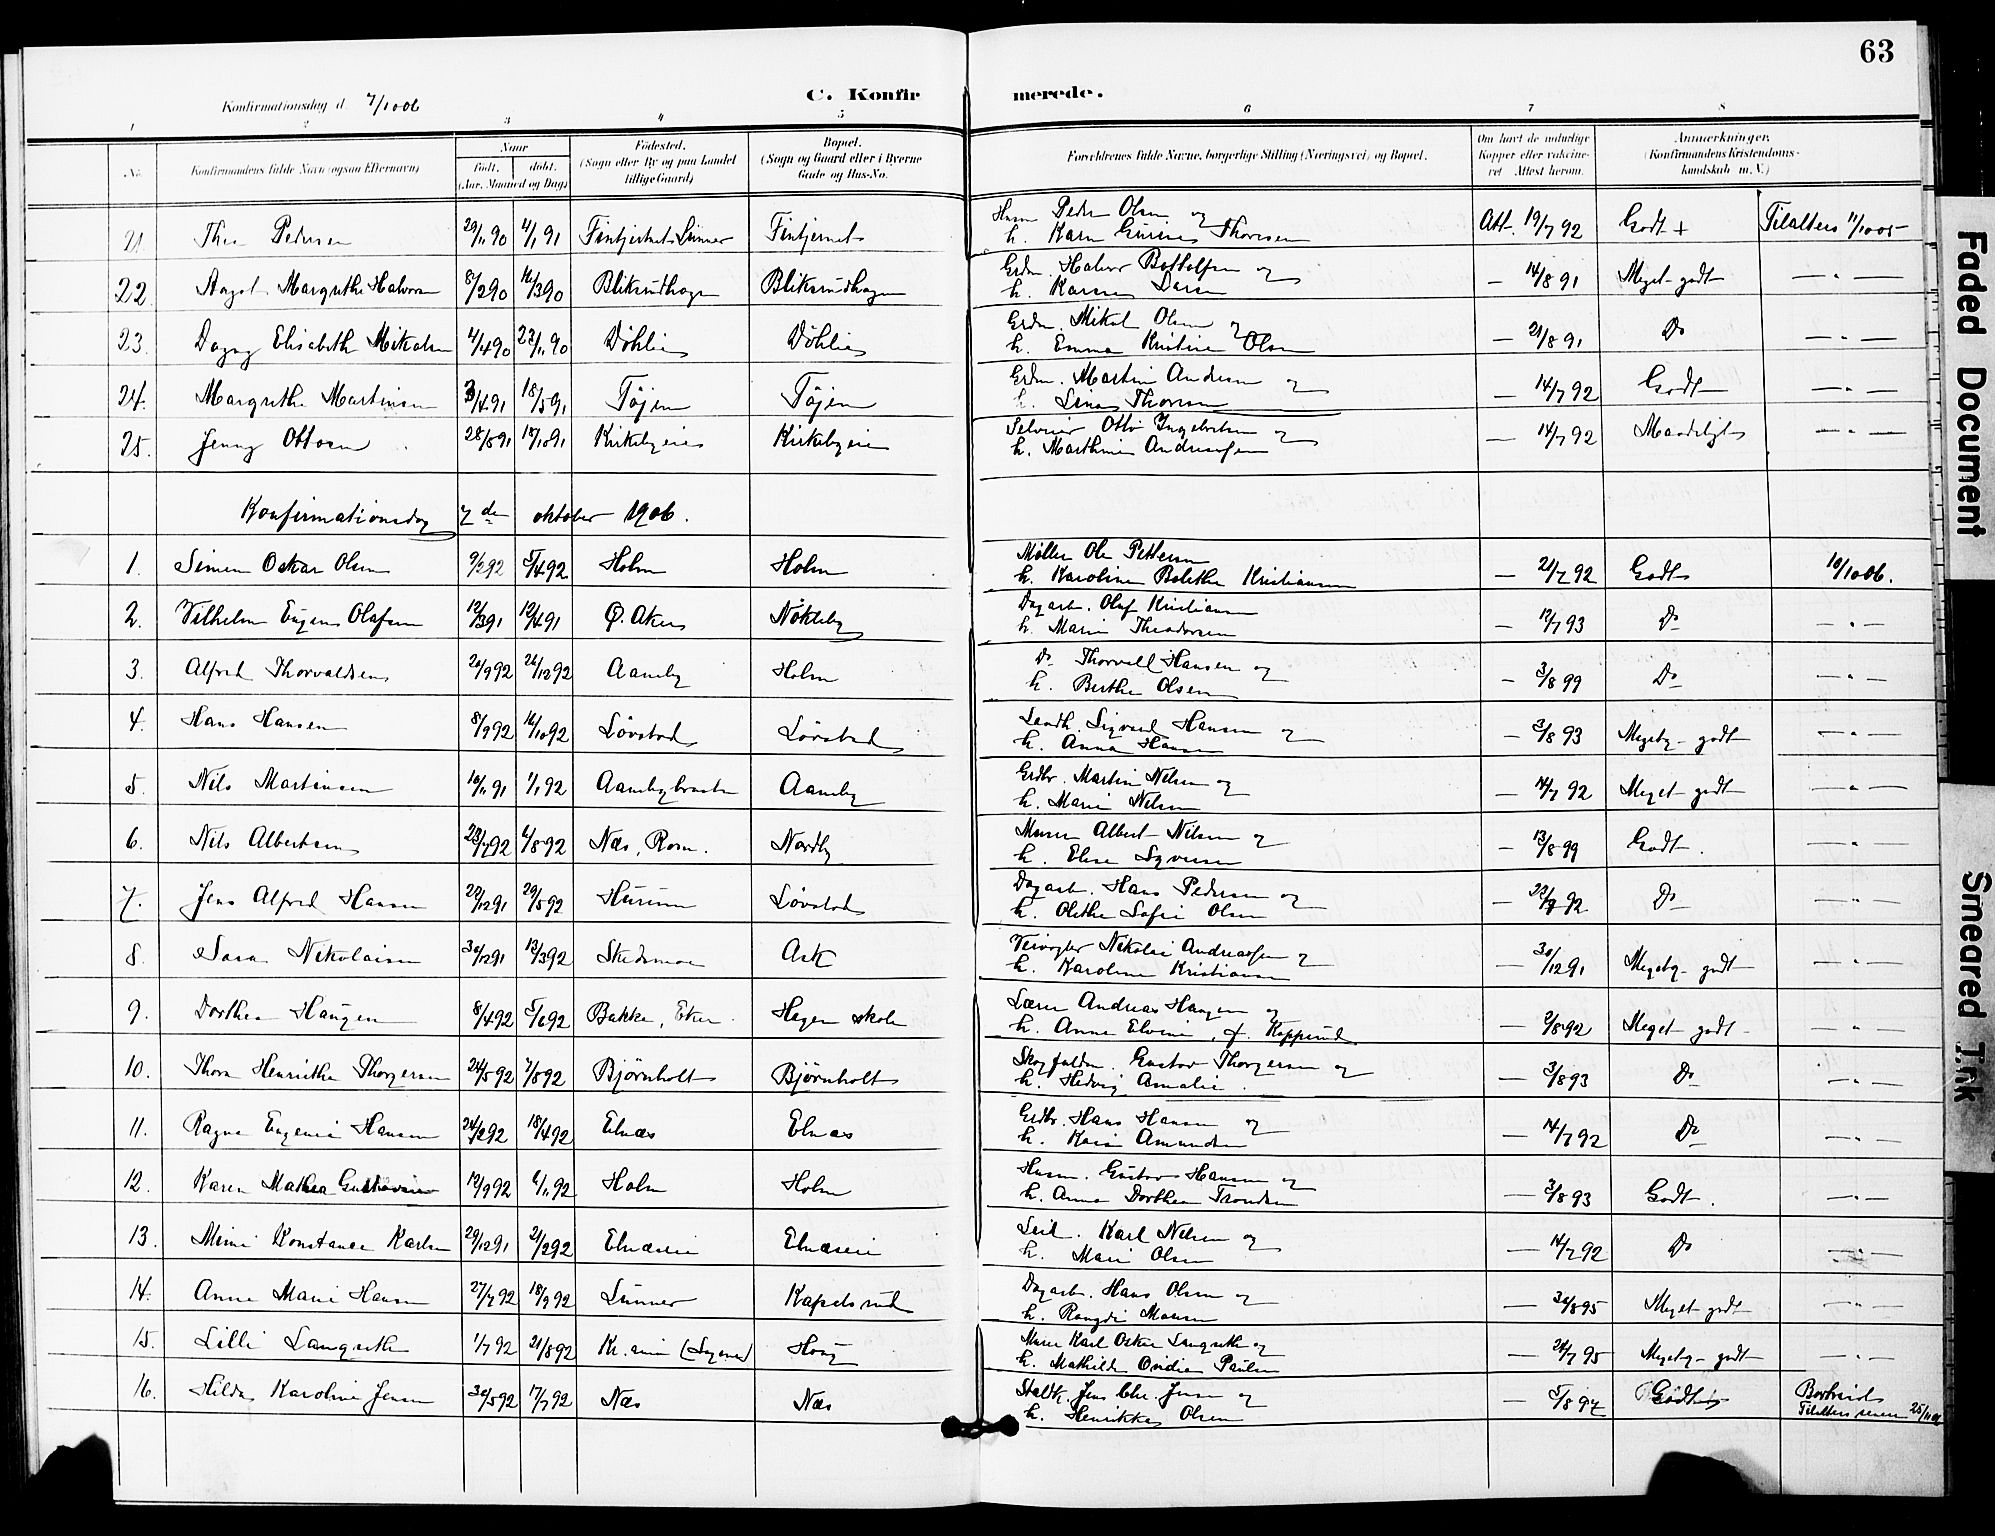 63
Konfirmationsdag d. 7/10 06
C. Konfirmerede.
1 2 3 4 5 6 7 8
No. Konfirmandens fulde Navn (ogsaa Efternavn) Naar født. døbt. (Aar, Maaned og Dag) Fødested. (Sogn eller By og paa Landet tillige Gaard) Bopæl. (Sogn og Gaard eller i Byerne Gade og Hus-No. Forældrenes fulde Navne, borgerlige Stilling (Næringsvei) og Bopæl. Om havt de naturlige Kopper eller vaccineret. Attest herom. Anmerkninger. (Konfirmandens Kristendomskundskab m. V.)
21. Thea Pedersen 29/11 90 4/1 91 Husm Peder Olsen og h. Karen Thoresen Att. 19/7 92 Godt + Tilalters 11/10 05
22. Margrethe Halvors 8/2 90 16/3 90 Bliksrudhagen Bliksrudhagen Grdm. Halvor og h. Karen — 14/8 91 Meget godt — " —
23. Dagny Elisabeth Mikalsen 4/4 90 Døhlie Døhlie Grdm. Mikal Olsen og h. Emma Kristine Olsen — 21/8 91 Do — " —
24. Margrethe Martinsen 3/4 91 18/5 91 Tøjen Tøjen Grdm. Martin Andersen og h. Lina Thoresen — 14/7 92 Godt — " —
25. Jenny Ottosen 28/8 91 18/10 91 Kirkebyeie Kirkebyeie Selveier Otto og h. Marthine Andreassen — 14/7 92 Maadeligt — " —
Konfirmationsdag 7de oktober 1906.
1. Simen Oskar Olsen 9/2 92 5/4 92 Holm Holm Møller Ole Pettersen h. Karoline Bolethe Kristiansen — 21/7 92 Godt 10/10 06.
2. Vilhelm Eugen Olafsen 12/3 91 12/4 91 Ø. Aker Nøkleby Dagarb. Olaf Kristiansen h. Marie Theodorsen — 12/7 93 Do — " —
3. Alfred Thorvaldsen 20/9 92 26/12 92 Aamby Holm Do Thorvall Hansen og h. Berthe Olsen — 3/8 99 Do — " —
4. Hans Hansen 8/9 92 16/10 92 Løvstad Løvstad Sigvard Hansen og h. Anna Hansen — 3/8 93 Megeby - godt — " —
5. Nils Martinsen 10/11 91 1/1 92 Aambybraaten Aamby Grdbr. Martin Nilsen og h. Marie Nilsen — 14/7 92 Meget godt — " —
6. Nils Albertsen 23/7 92 6/8 92 Næs, Rom. Nordby Murer Albert Nilsen og h. Elise Syversen — 13/8 99 Godt. — " —
7. Jens Alfred Hansen 22/12 91 29/5 92 Hurum Løvstad Dagarb. Hans Pedersen og h. Olethe Sofie Olsen — 22/7 92 Do — " —
8. Sara Nikolaisen 30/12 91 13/3 92 Skedsmoe Ask Veivogter Nikolai Andreassen og h. Karoline Kristiansen — 30/12 91 Megeby - godt — " —
9. Dorthea Haugen 8/4 92 5/6 92 Bakke, Eker Hagen skole Lærer Andreas Haugen og h. Anne Elvine, f. Kopperud — 2/8 92 Meget godt — " —
10. Thora Henriette Thorgersen 24/5 92 7/8 92 Bjørnholt Bjørnholt Skogfuldm. Gustav Thorgersen og h. Hedvig Amalie. — 3/8 93 Do — " —
11. Ragna Eugenie Hansen 24/2 92 18/4 92 Elnæs Elnæs Grdbr. Hans Hansen og h. Karin Amundsen — 14/7 92 Do — " —
12. Karen Mathea Gustavsen 12/9 92 6/11 92 Holm Holm Husm. Gustav Hansen og h. Anna Dorthea Trondsen — 3/8 93 Godt. — " —
13. Mimi Konstance Karlsen 29/12 91 21/2 92 Elnæseie Elnæseie Karl Nilsen og h. Mari Olsen — 14/7 92 Do — " —
14. Anna Marie Hansen 27/7 92 18/9 92 Lunner Kapelsrud Dagarb. Hans Olsen og h. Rangdi Monsen — 30/8 95 Meget godt — " —
15. Lilli Langseth 1/7 92 21/8 92 Kr.ania Houg Murer Karl Oskar Langseth og h. Mathilde Ovidia Paulsen — 24/7 95 Megeby - godt — " —
16. Hilda Karoline Jensen 30/5 92 17/7 92 Næs Næs Jens Chr. Jensen og h. Henrikke Olsen — 5/8 94 Godt Bortreist Tilalters senere 25/11 06
Faded Document
Smeared Ink